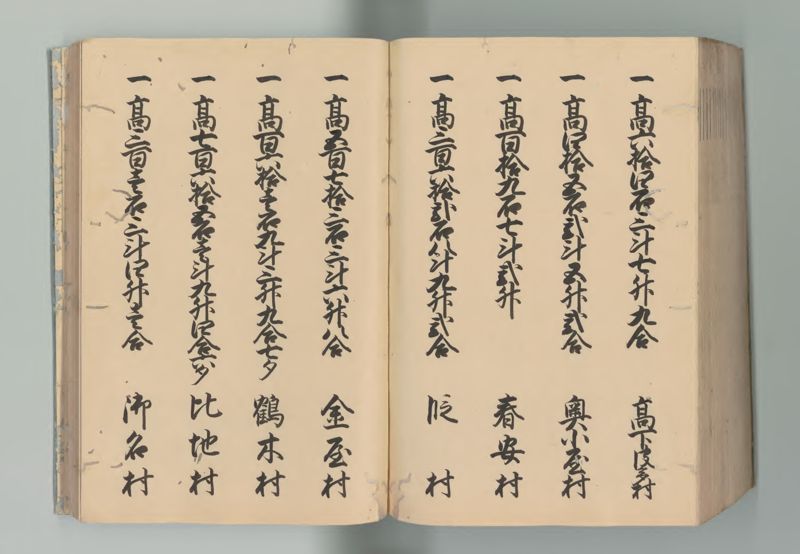 一 高六拾四石三斗七升九合 高下村
一 高四拾五石弐斗五升弐合 奥小屋村
一 高百拾九石七斗弐升 春安村
一 高三百六拾弐石八斗九升弐合 段村
一 高五百七拾三石三斗六升八合 金屋村
一 高百六拾壱石九斗三升九合七夕 鶴木村
一 高七百六拾五石壱斗九升四合六夕 比地村
一 高三百壱石三斗四升壱合 御名村